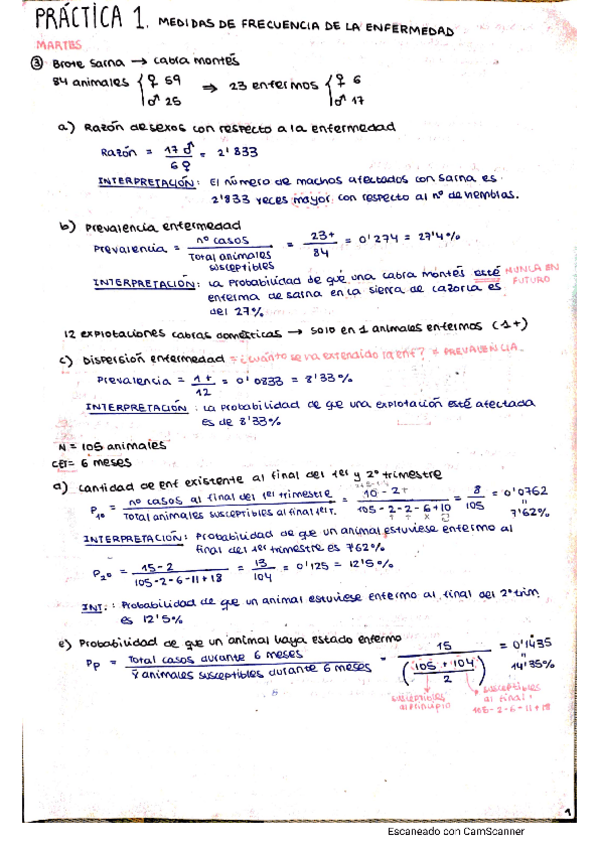 PRÁCTICA 1. MEDIDAS DE FRECUENCIA DE LA ENFERMEDAD
MARTES
③ Brote sarna → cabra montés
84 animales { ♀ 59 ⇒ 23 enfermos { ♀ 6
♂ 25 ♂ 17
a) Razón de sexos con respecto a la enfermedad
Razón = 17 ♂ / 6 ♀ = 2'833
INTERPRETACIÓN: El número de machos afectados con sarna es
2'833 veces mayor con respecto al nº de hembras.
b) Prevalencia enfermedad
Prevalencia = nº casos / Total animales susceptibles = 23+ / 84 = 0'274 = 27'4%
INTERPRETACIÓN: La probabilidad de que una cabra montés esté NUNCA EN FUTURO
enferma de sarna en la sierra de cazorla es
del 27%
12 explotaciones cabras domésticas → solo en 1 animales enfermos (1+)
c) Dispersión enfermedad = ¿cuánto se ha extendido la enf? * PREVALENCIA.
Prevalencia = 1+ / 12 = 0'0833 = 8'33%
INTERPRETACIÓN: La probabilidad de que una explotación esté afectada
es de 8'33%
N = 105 animales
= 6 meses
d) Cantidad de enf existente al final del 1er y 2º trimestre
P10 = nº casos al final del 1er trimestre / Total animales susceptibles al final 1er T. = 10 - 2+ / 105 - 2 - 2 - 6 + 10 = 8 / 105 = 0'0762
7'62%
INTERPRETACIÓN: Probabilidad de que un animal estuviese enfermo al
final del 1er trimestre es 7'62%
P20 = 15 - 2 / 105 - 2 - 6 - 11 + 18 = 13 / 104 = 0'125 = 12'5%
INT.: Probabilidad de que un animal estuviese enfermo al final del 2º trim
es 12'5%
e) Probabilidad de que un animal haya estado enfermo
Pp = Total casos durante 6 meses / x̄ animales susceptibles durante 6 meses = 15 / (105 + 104 / 2) = 0'1435
14'35%
susceptibles al principio
susceptibles al final =
105 - 2 - 6 - 11 + 18
1
Escaneado con CamScanner